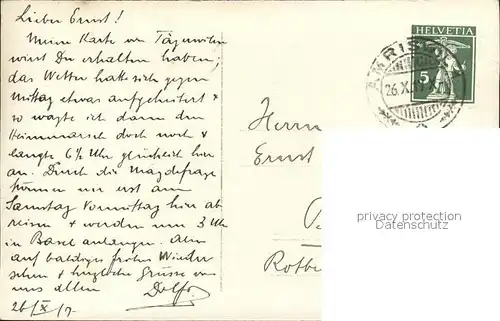 Lieber Ernst!
Meine Karte von Tägerwilen
wirst Du erhalten haben;
das Wetter hatte sich gegen
Mittag etwas aufgeheitert &
so wagte ich dann den
Heimmarsch doch noch &
langte 6½ Uhr glücklich hier
an. Durch die Magdefrage
können wir erst am
Samstag Vormittag hier ab-
reisen & werden um 3 Uhr
in Basel anlangen. Also
auf baldiges frohes Wieder
sehen & herzliche Grüsse von
uns allen
26/X/17
Herrn
Ernst
Rotbe
HELVETIA
5
AMRISWIL
26.X.17
privacy protection
Datenschutz